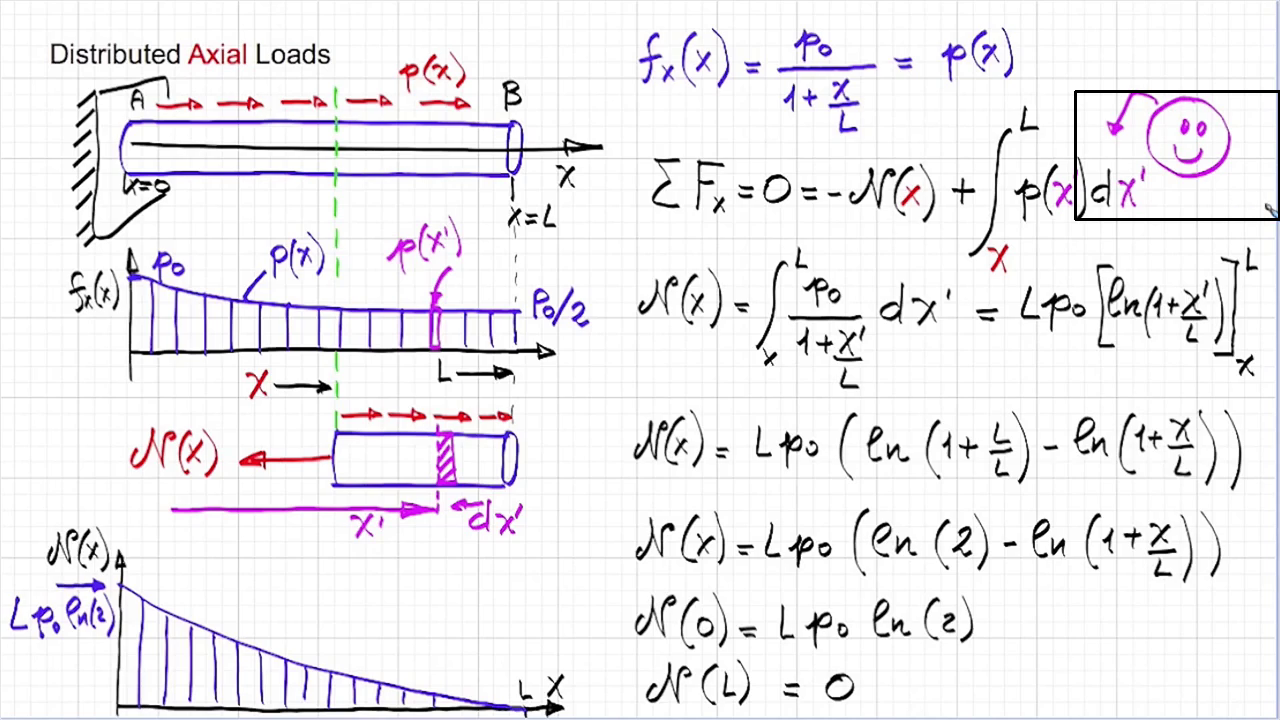 Distributed Axial Loads
p(x)
A
B
x=0
x
x=L
fx(x)
p0
p(x)
p(x')
p0/2
x
L
N(x)
x'
dx'
N(x)
Lp0 ln(2)
L x
fx(x) = p0/(1+x/L) = p(x)
ΣFx = 0 = -N(x) + ∫_x^L p(x)dx'
N(x) = ∫_x^L p0/(1+x'/L) dx' = Lp0 [ln(1+x'/L)]_x^L
N(x) = Lp0 (ln(1+L/L) - ln(1+x/L))
N(x) = Lp0 (ln(2) - ln(1+x/L))
N(0) = Lp0 ln(2)
N(L) = 0